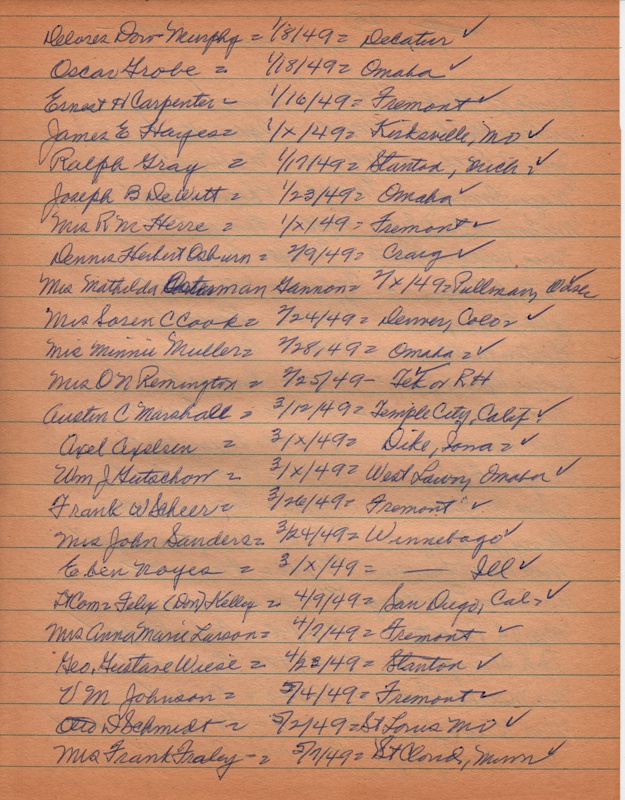 Delores Dow Murphy = 1/8/49 = Decatur ✓
Oscar Grobe = 1/18/49 = Omaha ✓
Ernest H Carpenter = 1/16/49 = Fremont ✓
James E Hayes = 1/x/49 = Kirksville, Mo ✓
Ralph Gray = 1/17/49 = Stanton, Mich = ✓
Joseph B DeWitt = 1/23/49 = Omaha ✓
Mrs R M Herre = 1/x/49 = Fremont ✓
Dennis Herbert Osburn = 2/9/49 = Craig ✓
Mrs Mathilda Osterman Gannon = 2/x/49 = Pullman, Wash ✓
Mrs Soren C Cook = 2/24/49 = Denver, Colo = ✓
Mrs Minnie Muller = 2/28/49 = Omaha = ✓
Mrs O N Remington = 2/25/49 – Tek or RH
Austin C Marshall = 3/12/49 = Temple City, Calif. ✓
Axel Axelsen = 3/x/49 = Dike, Iowa = ✓
Wm J Gutschow = 3/x/49 = West Lawn, Omaha ✓
Frank W Scheer = 3/26/49 = Fremont ✓
Mrs John Sanders = 3/24/49 = Winnebago ✓
Eben Noyes = 3/x/49 = — Ill ✓
Felix (Don) Kelley = 4/9/49 = San Diego, Cal = ✓
Mrs Anna Marie Larson = 4/7/49 = Fremont ✓
Geo. Gustave Wiese = 4/22/49 = Stanton ✓
V M Johnson = 5/4/49 = Fremont ✓
Otto D Schmidt = 5/2/49 = St Louis Mo ✓
Mrs Frank Fraley = 5/7/49 = St Cloud, Minn ✓